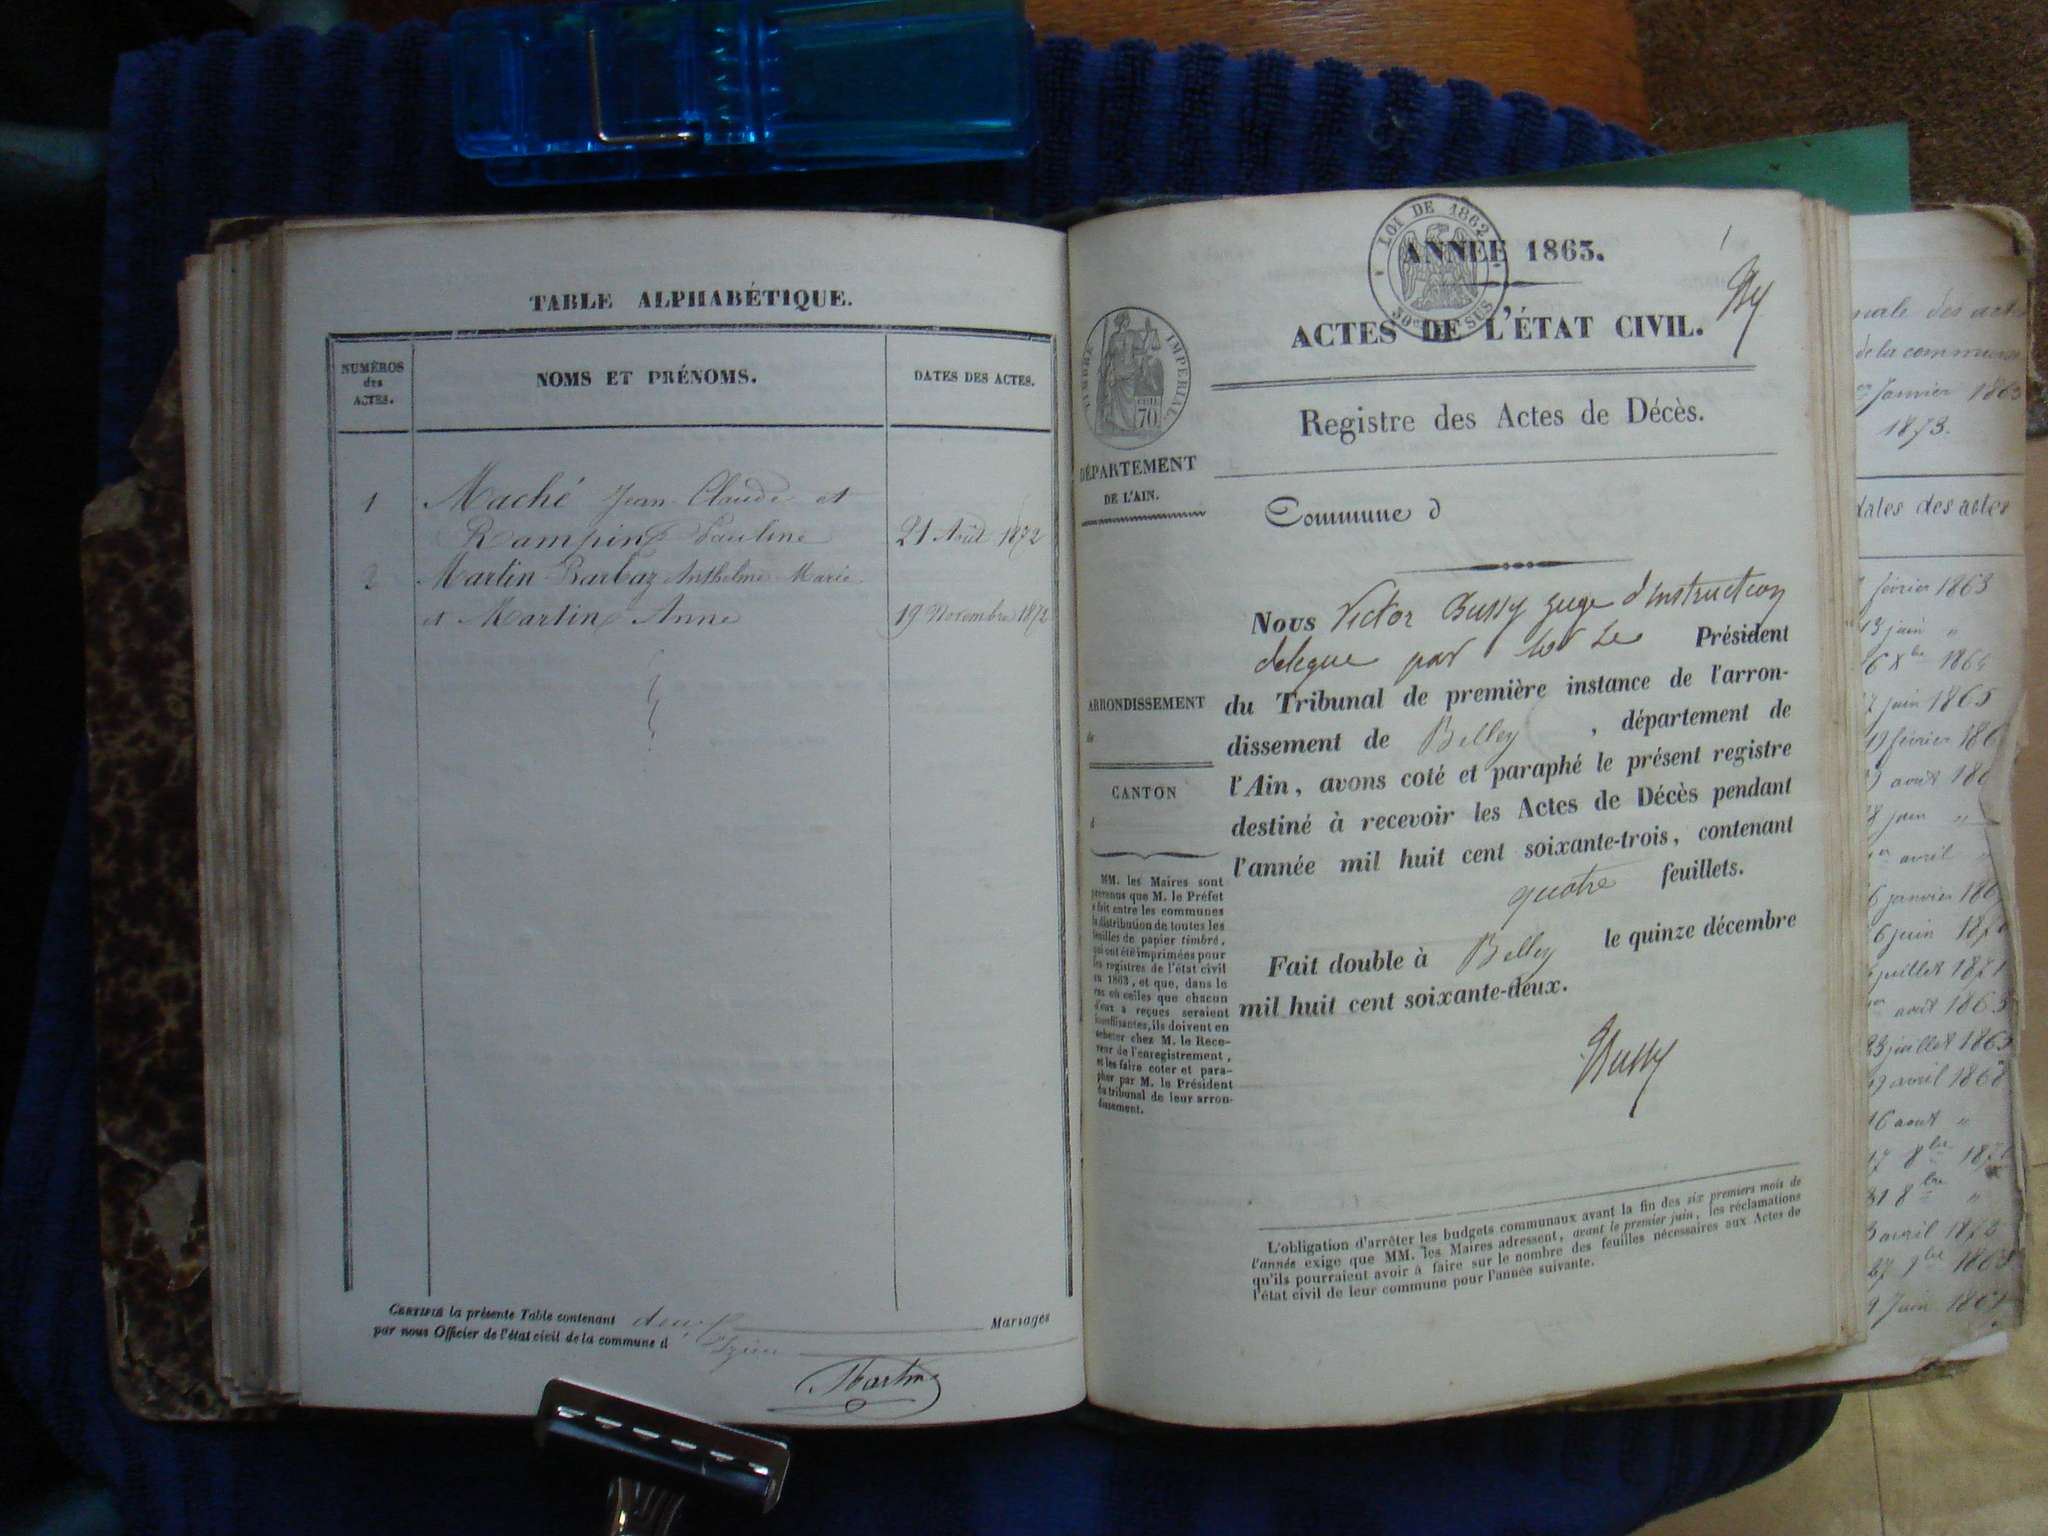 TABLE ALPHABÉTIQUE.
NUMÉROS
des
ACTES.
NOMS ET PRÉNOMS.
DATES DES ACTES.
1 Maché Jean Claude et
Rampin Pauline 21 Août 1872
2 Martin Barbaz Anthelme Marie
et Martin Anne 19 Novembre 1872
CERTIFIÉ la présente Table contenant deux Mariages
par nous Officier de l'état civil de la commune d
Martin
LOI DE 1862
50e SUS
ANNÉE 1863.
1
ACTES DE L'ÉTAT CIVIL.
TIMBRE IMPÉRIAL
70
Registre des Actes de Décès.
DÉPARTEMENT
DE L'AIN.
Commune d
ARRONDISSEMENT
de
CANTON
d
MM. les Maires sont
prévenus que M. le Préfet
a fait entre les communes
la distribution de toutes les
feuilles de papier timbré,
qui ont été imprimées pour
les registres de l'état civil
en 1863, et que, dans le
cas où celles que chacun
d'eux a reçues seraient
insuffisantes, ils doivent en
acheter chez M. le Rece-
veur de l'enregistrement,
et les faire coter et para-
pher par M. le Président
du tribunal de leur arron-
dissement.
Nous Victor Bussy juge d'instruction
délégué par Mr Le Président
du Tribunal de première instance de l'arron-
dissement de Belley, département de
l'Ain, avons coté et paraphé le présent registre
destiné à recevoir les Actes de Décès pendant
l'année mil huit cent soixante-trois, contenant
quatre feuillets.
Fait double à Belley le quinze décembre
mil huit cent soixante-deux.
Bussy
L'obligation d'arrêter les budgets communaux avant la fin des six premiers mois de
l'année exige que MM. les Maires adressent, avant le premier juin, les réclamations
qu'ils pourraient avoir à faire sur le nombre des feuilles nécessaires aux Actes de
l'état civil de leur commune pour l'année suivante.
des actes
de la commune
Janvier 1863
1873.
dates des actes
février 1863
13 juin "
juin 1865
19 février
août
juin "
avril "
janvier
6 juin
juillet 1871
août 1863
23 juillet
avril 1868
16 août "
17 8bre
31 8bre "
avril 1873
27
Juin